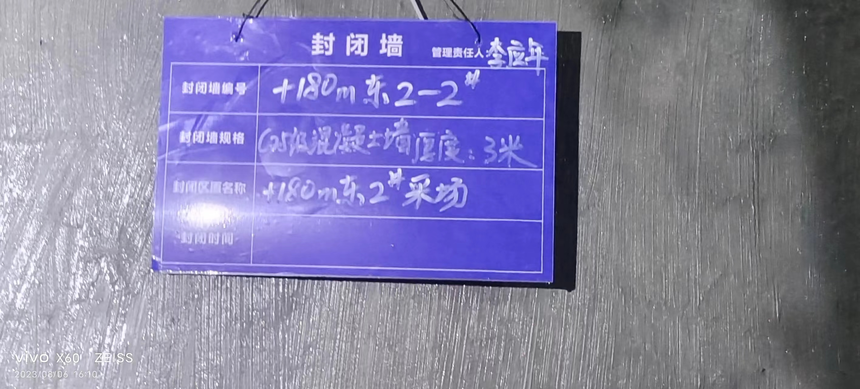 封闭墙 管理责任人:李应年
封闭墙编号 +180m东2-2#
封闭墙规格 C25级混凝土墙厚度:3米
封闭区域名称 +180m东2#采场
封闭时间
vivo X60 ZEISS
2023/08/06 16:10